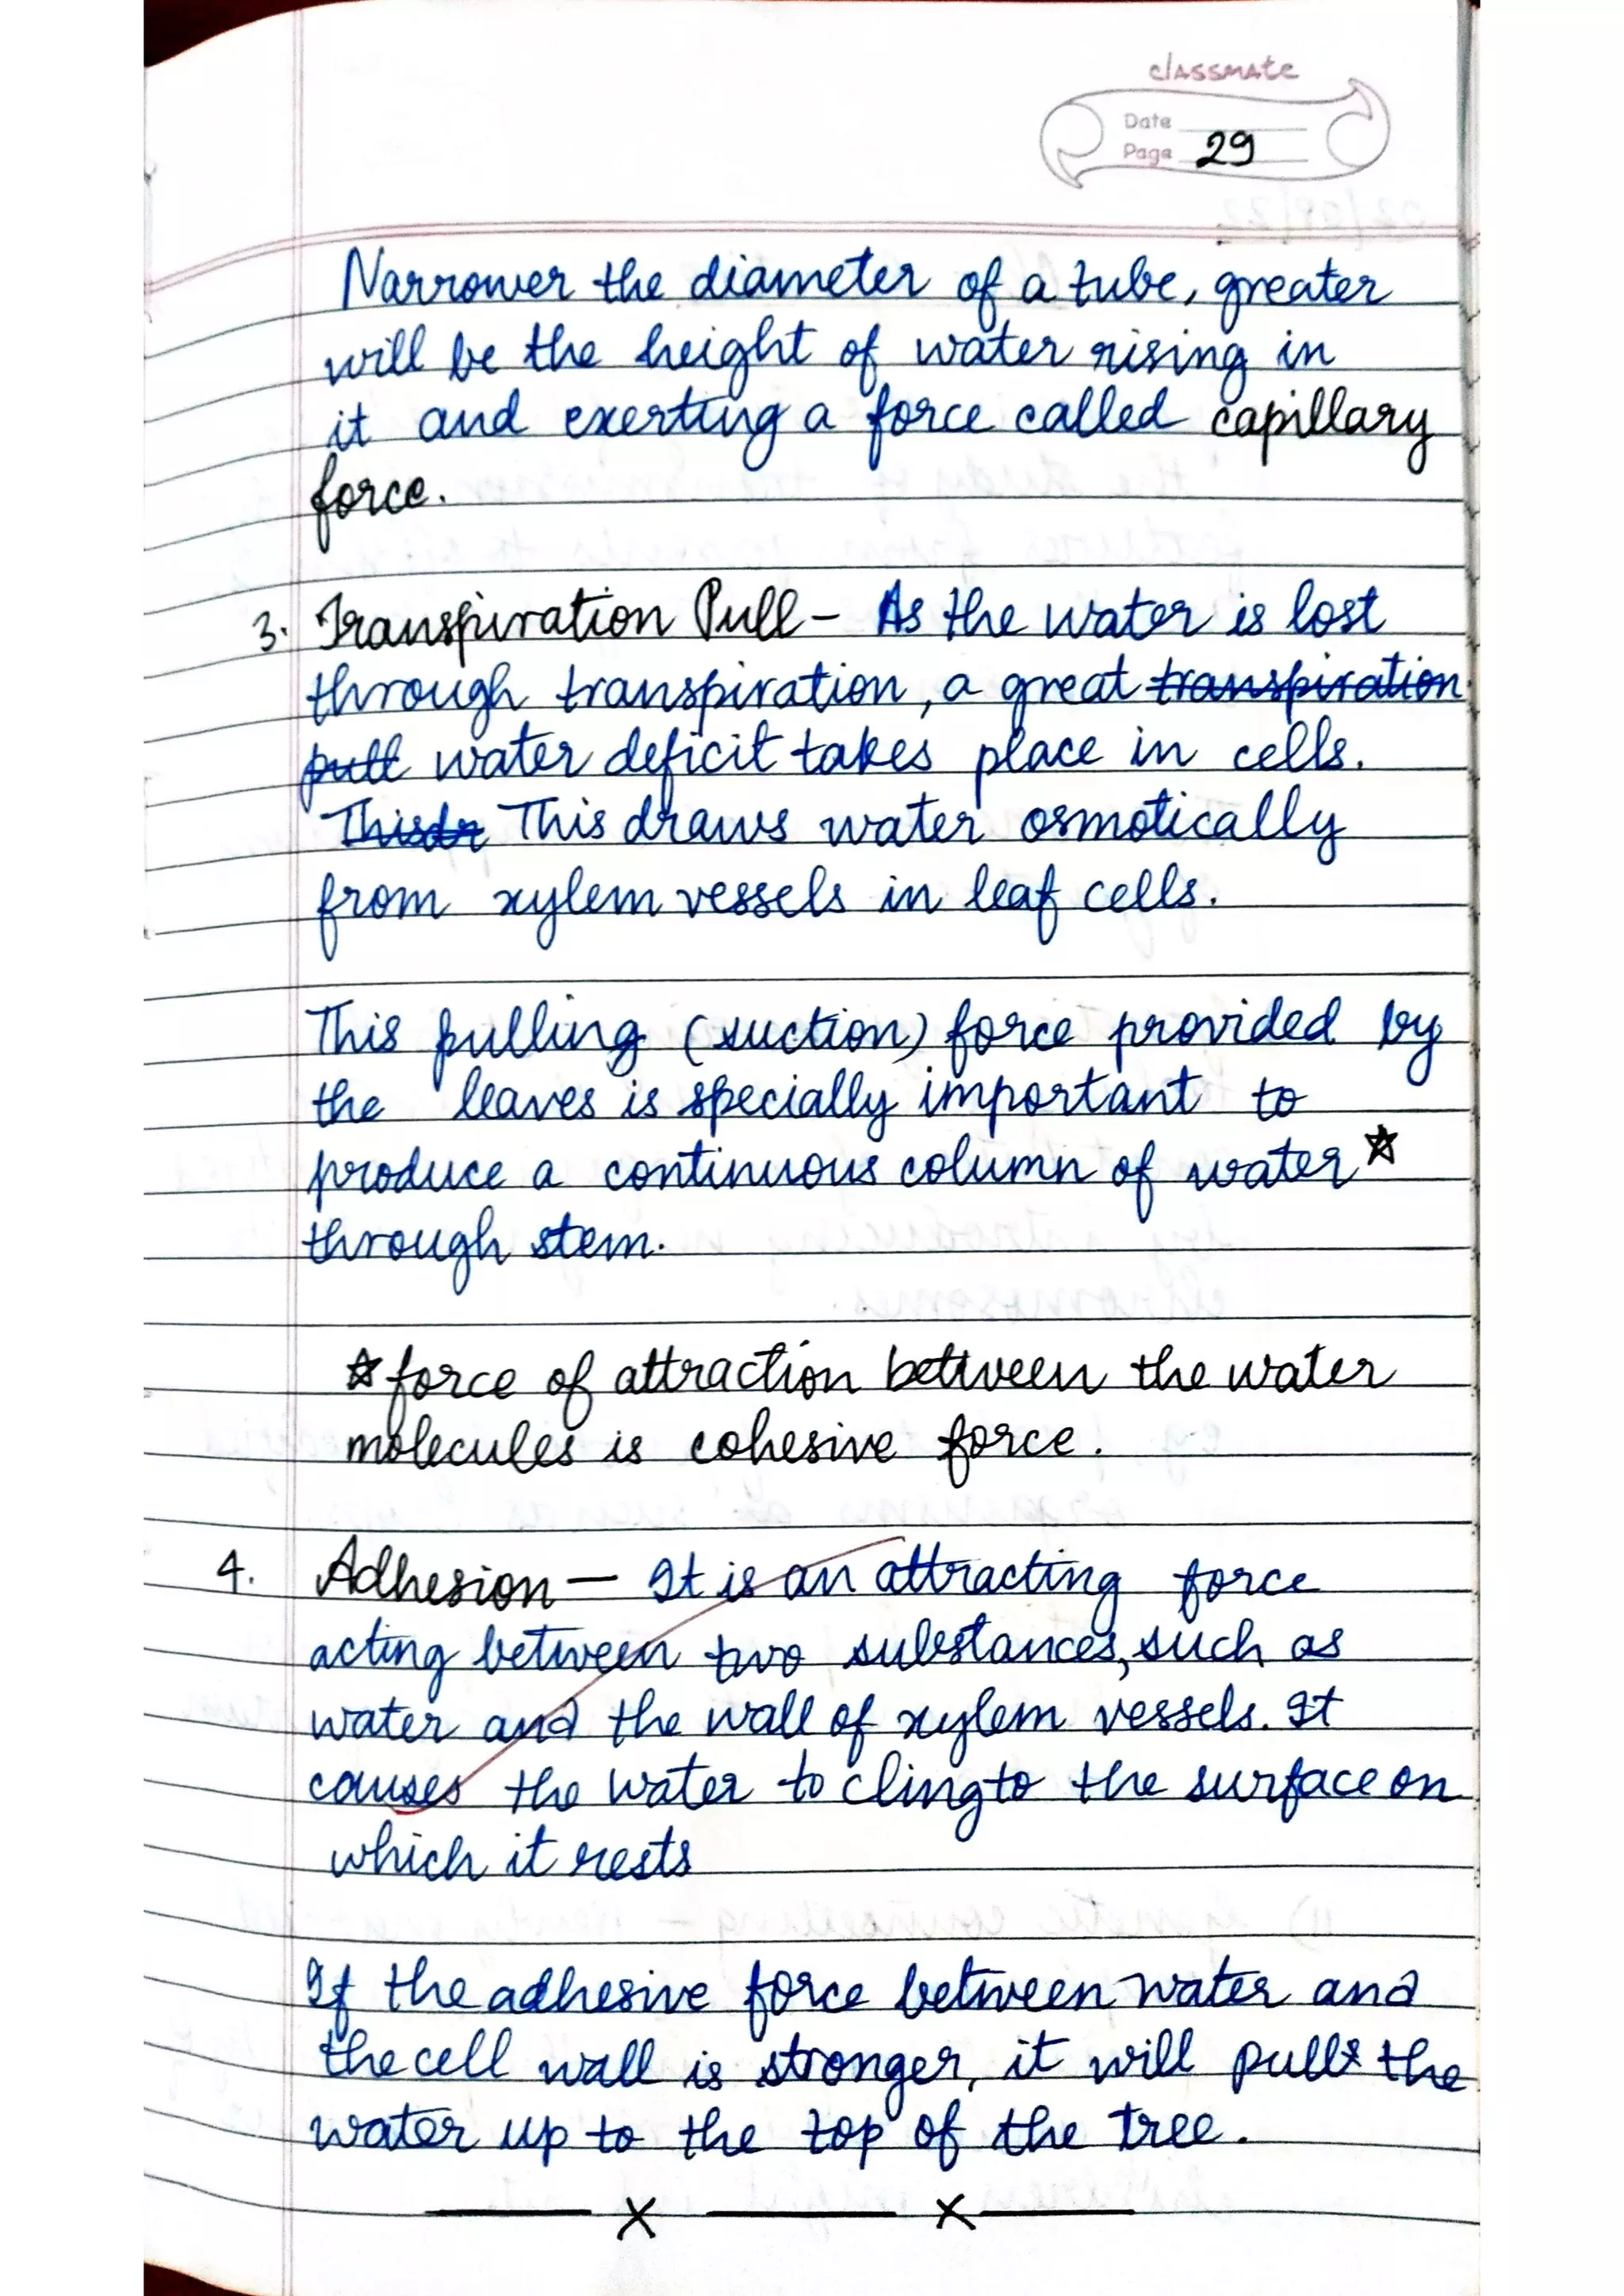 classmate
Date
Page 29
Narrower the diameter of a tube, greater
will be the height of water rising in
it and exerting a force called capillary
force.
3. Transpiration Pull - As the water is lost
through transpiration, a great transpiration
pull water deficit takes place in cells.
Thisdr This draws water osmotically
from xylem vessels in leaf cells.
This pulling (suction) force provided by
the leaves is specially important to
produce a continuous column of water ☆
through stem.
☆ force of attraction between the water
molecules is cohesive force.
4. Adhesion — It is an attracting force
acting between two substances, such as
water and the wall of xylem vessels. It
causes the water to cling to the surface on
which it rests
If the adhesive force between water and
the cell wall is stronger, it will pulls the
water up to the top of the tree.
—— x —— x ——